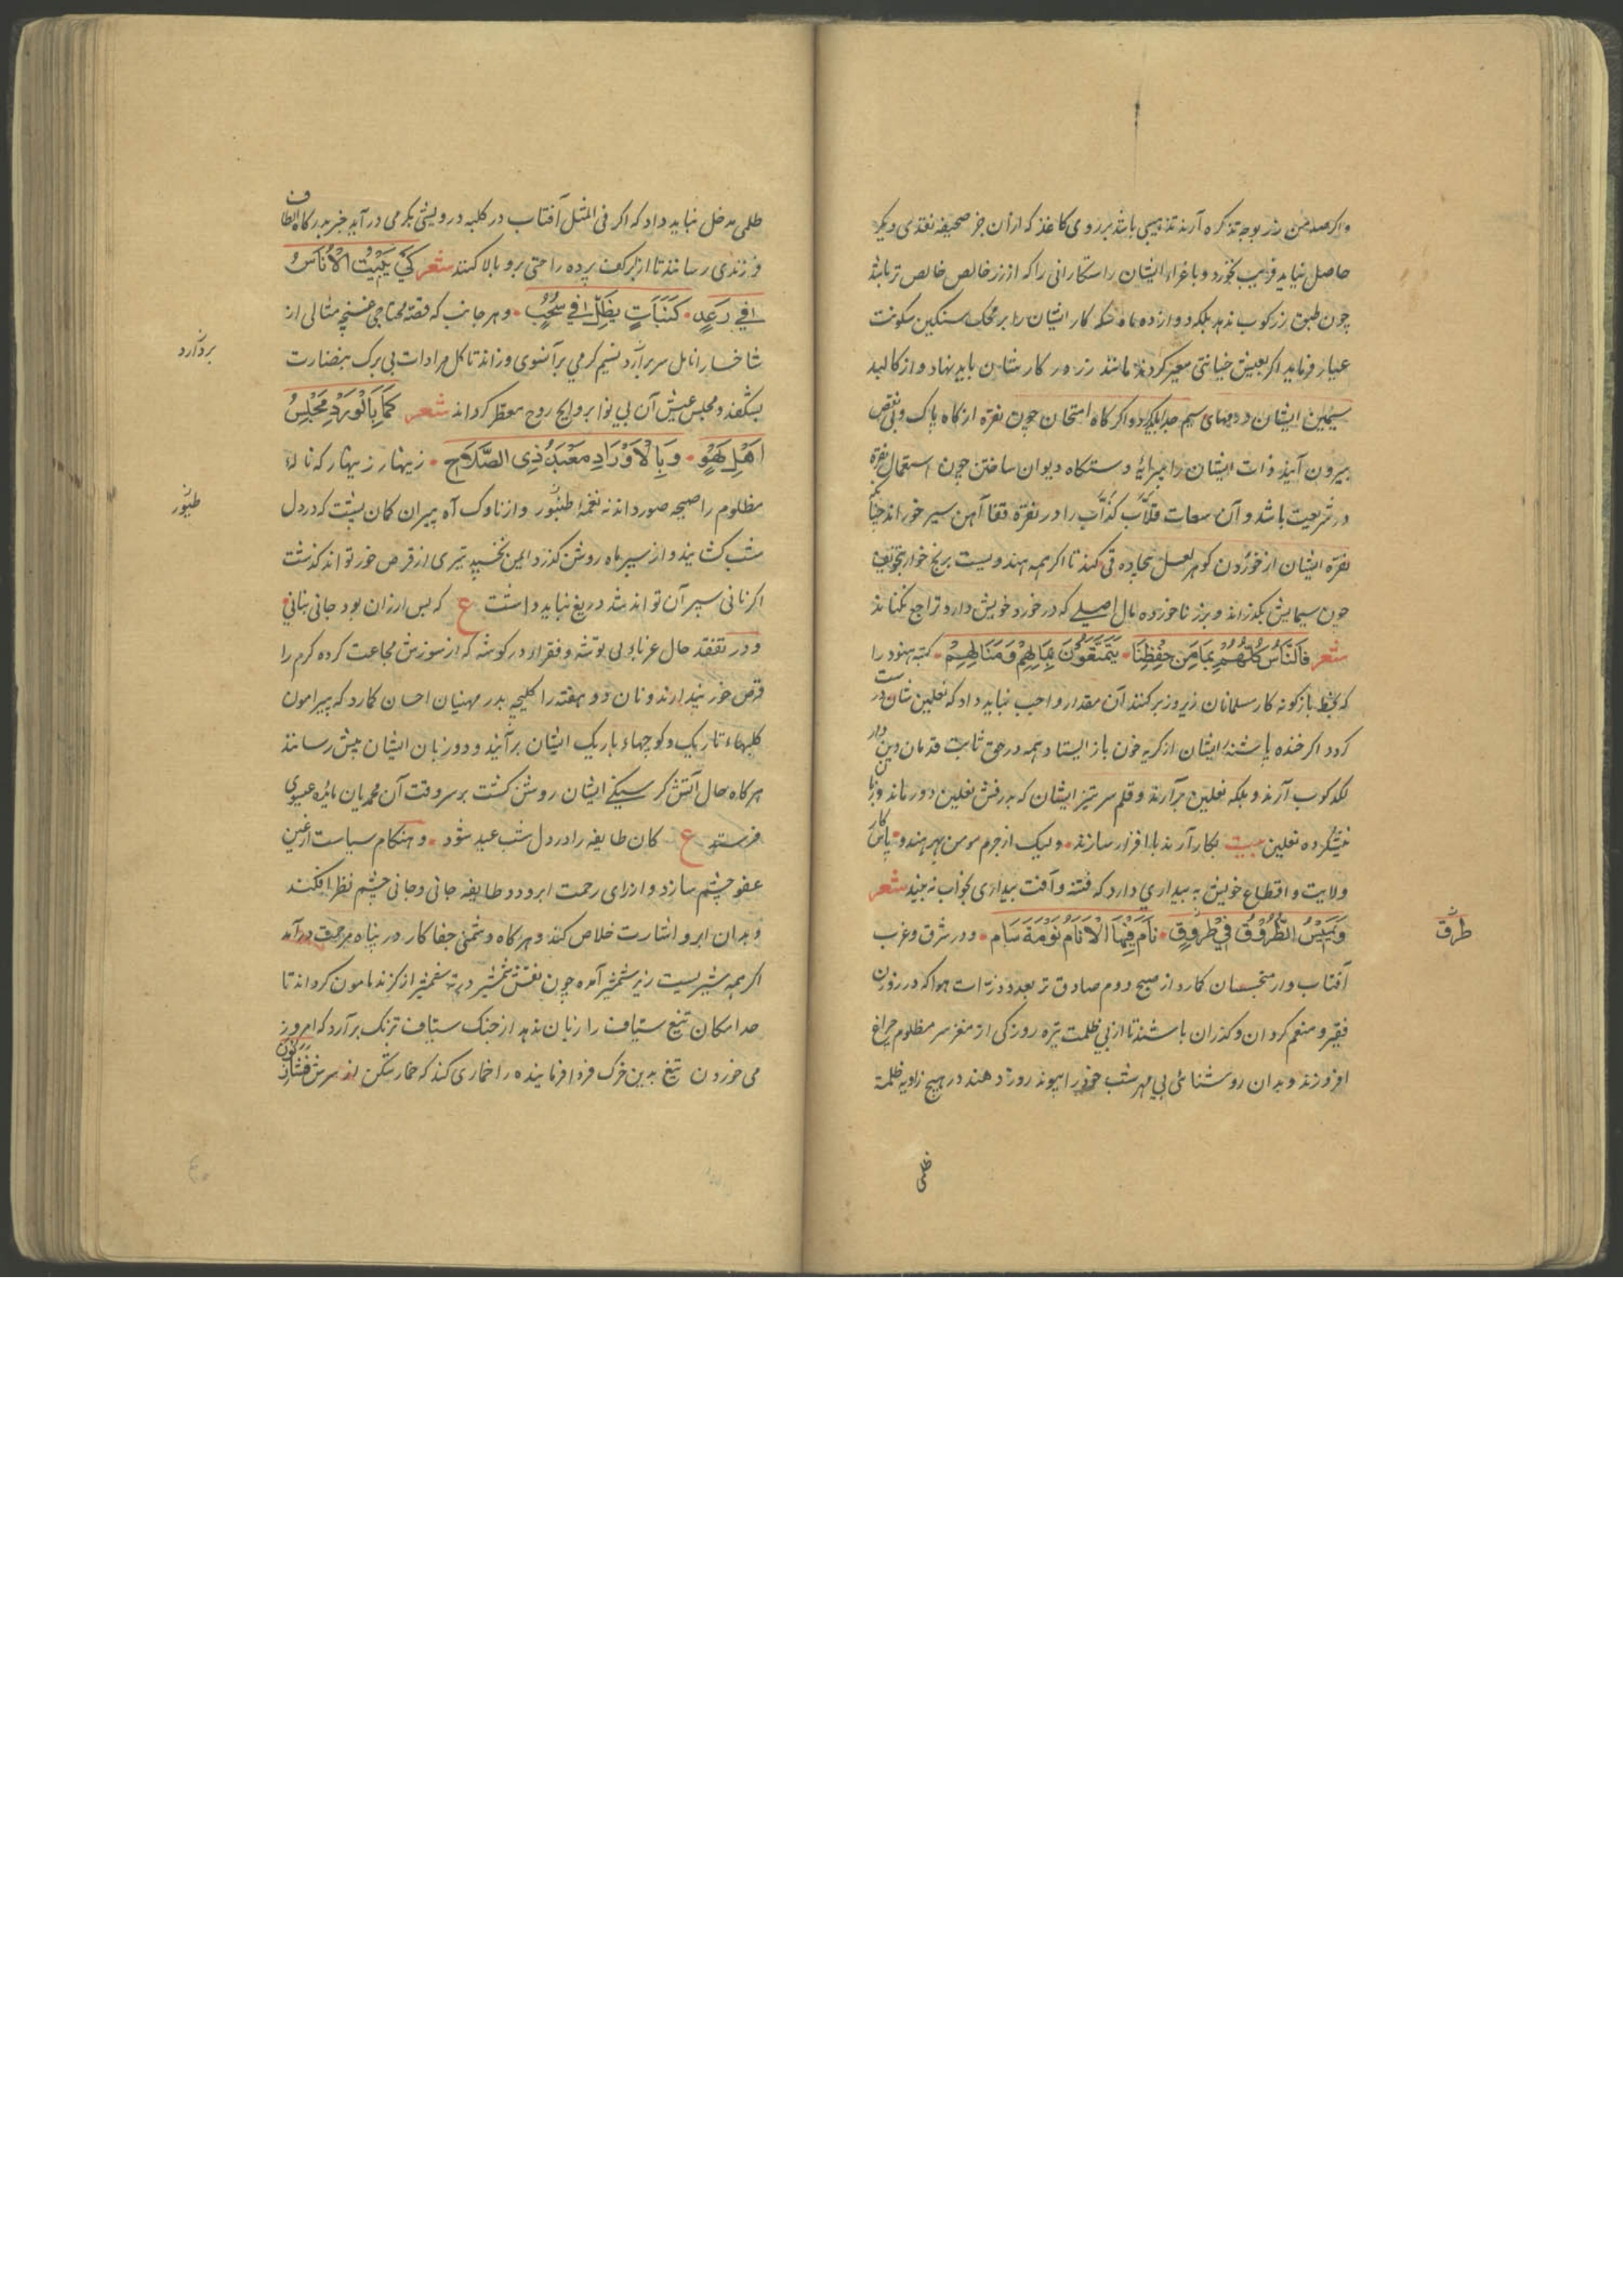 واکر صد من زر بوجه تذکره آرند تذهیبی باشد بر روی کاغذ که از آن جز صحیفه نقدی دیکر
حاصل نیاید فریب نخورد و باغراء ایشان راستکارانی را که از زر خالص خالص تر باشد
چون طبق زرکوب ندهد بلکه دوازده ماه سکه کار ایشان را بر محک سنکین سکونت
عیار فرماید اکر بعیش خیانتی مغیر کردند مانند زر در کار نشان باید نهاد و از کالبد
سیمین ایشان درمهای سیم جدا باید کرد و اکر کاه امتحان چون نقره از کاه پاک و بی نقص
بیرون آیند ذات ایشان را پیرایهٔ دستکاه دیوان ساختن چون استعمال نقره
در شریعت باشد و آن سعات قلّاب کذّاب را در نقره قفا آهن سیر خوراند چنانک
نقره ایشان از خوردن کوهر لعل سجاده قی کند تا اکر همه هندویست برنج خوار بتخویف
چون سیمایش بکذراند و بزر ناخورده مال اصلی که در خورد خویش دارد تراجع نکناند
شعر فَالنَّاسُ كُلُّهُمْ بِمَا مِنْ حِفْظِنَا • يَتَمَتَّعُونَ بِمَالِهِمْ وَمَنَالِهِمْ • کتبه هنود را
که بخط بازکونه کار مسلمانان زیر و زبر کنند آن مقدار واجب نباید داد که نعلین شان درست
کردد اکر خنده پاشنه ایشان از کریه خون باز ایستاد همه در حق ثابت قدمان دین دار
لکدکوب آرند و بلکه نعلین برآرند و قلم سر تیز ایشان که بدرفش نعلین دوز ماند و زبان
نیشکرده نعلین بیت بکار آرند پا افزار سازند • ولیک از جرم مومن بهر هندو • پاس کار
ولایت و اقطاع خویش به بیداری دارد که فتنه و آفت بیداری بخواب نه بیند شعر
وَيَمِيسُ الطُّرُوقُ فِي طُرُوقٍ • نَامَ فِيهَا الْأَنَامُ نَوْمَةَ سَام • و در شرق و غرب
آفتاب وار متجسسان کارد از صبح دوم صادق تر بعدد ذرات هوا که در روزن
فقیر و منعم کردان و کذران باشند تا از بی ظلمت تیره روزکی از مغز سر مظلوم چراغ
افروزند و بدان روشنائی بی مهر شب خود را پیوند روز دهند در هیچ زاویه ظلمة
ظلمی
طرق
ظلمی مدخل نباید داد که اکر فی المثل آفتاب در کلبه درویشی بکرمی درآید خبر بدرکاه الطاف
فرزندی رسانند تا از برکف پرده راحتی برو بالا کنند شعر كَيْ يَبِيتُ الْأُنَاسُ
فِي رَعَدٍ • كَنَبَاتٍ يَظَلُّ فِي سُحُبٍ • و هر جانب که قصه محتاجی غنچه مثالی از
شاخسار انامل سر برآرد نسیم کرمی برآنسوی وزاند تا کل مرادات بی برک بنضارت
بشکفد و مجلس عیش آن بی نوا بروایح روح معطر کرداند شعر كَمَا بِالْوَرْدِ مَجْلِسُ
أَهْلِ لَهْوٍ • وَبِالْأَوْرَادِ مَعْبَدُ ذِي الصَّلَاحِ • زینهار زینهار که ناله
مظلوم را صیحه صور داند نه نغمه طنبور و از ناوک آه پیران کمان پشت که در دل
شب کشایند و از سپر ماه روشن کذرد ایمن نخسپد تیری از قرص خور تواند کذشت
اکر نانی سپر آن تواند شد دریغ نباید داشت ع که بس ارزان بود جانی بنانی
و در تفقد حال غربا و بی توشه و فقرا در کوشه که از سوزش مجاعت کرده کرم را
قرص خور پندارند و نان دو هفته را کلیچه بدر مهنیان احسان کمارد که پیرامون
کلبهاء تاریک و کوچهاء باریک ایشان برآیند و دور بان ایشان پیش رسانند
هرکاه حال آتش کرسنکی ایشان روشن کشت بر سر وقت آن محمدیان مائده عیسوی
فرستد ع کان طایفه را در دل شب عید شود • و هنکام سیاست از عین
عفو چشم سازد و از رای رحمت ابرو و در طایفه جانی و جانی چشم نظر افکند
و بدان ابرو اشارت خلاص کند و هرکاه دشمنی جفاکار در پناه مرحمت درآمد
اکر همه شیریست زیر شمشیر آمده چون نقش شمشیر در سفینه از کزند مامون کرداند تا
حد امکان تیغ سیاف را زبان ندهد از جنک سیاف ترنک برآرد که امروز
می خوردن تیغ بدین خرک فردا فرماینده را خماری کند که خمارشکن او سرش فشانند
بردآرد
طنبور